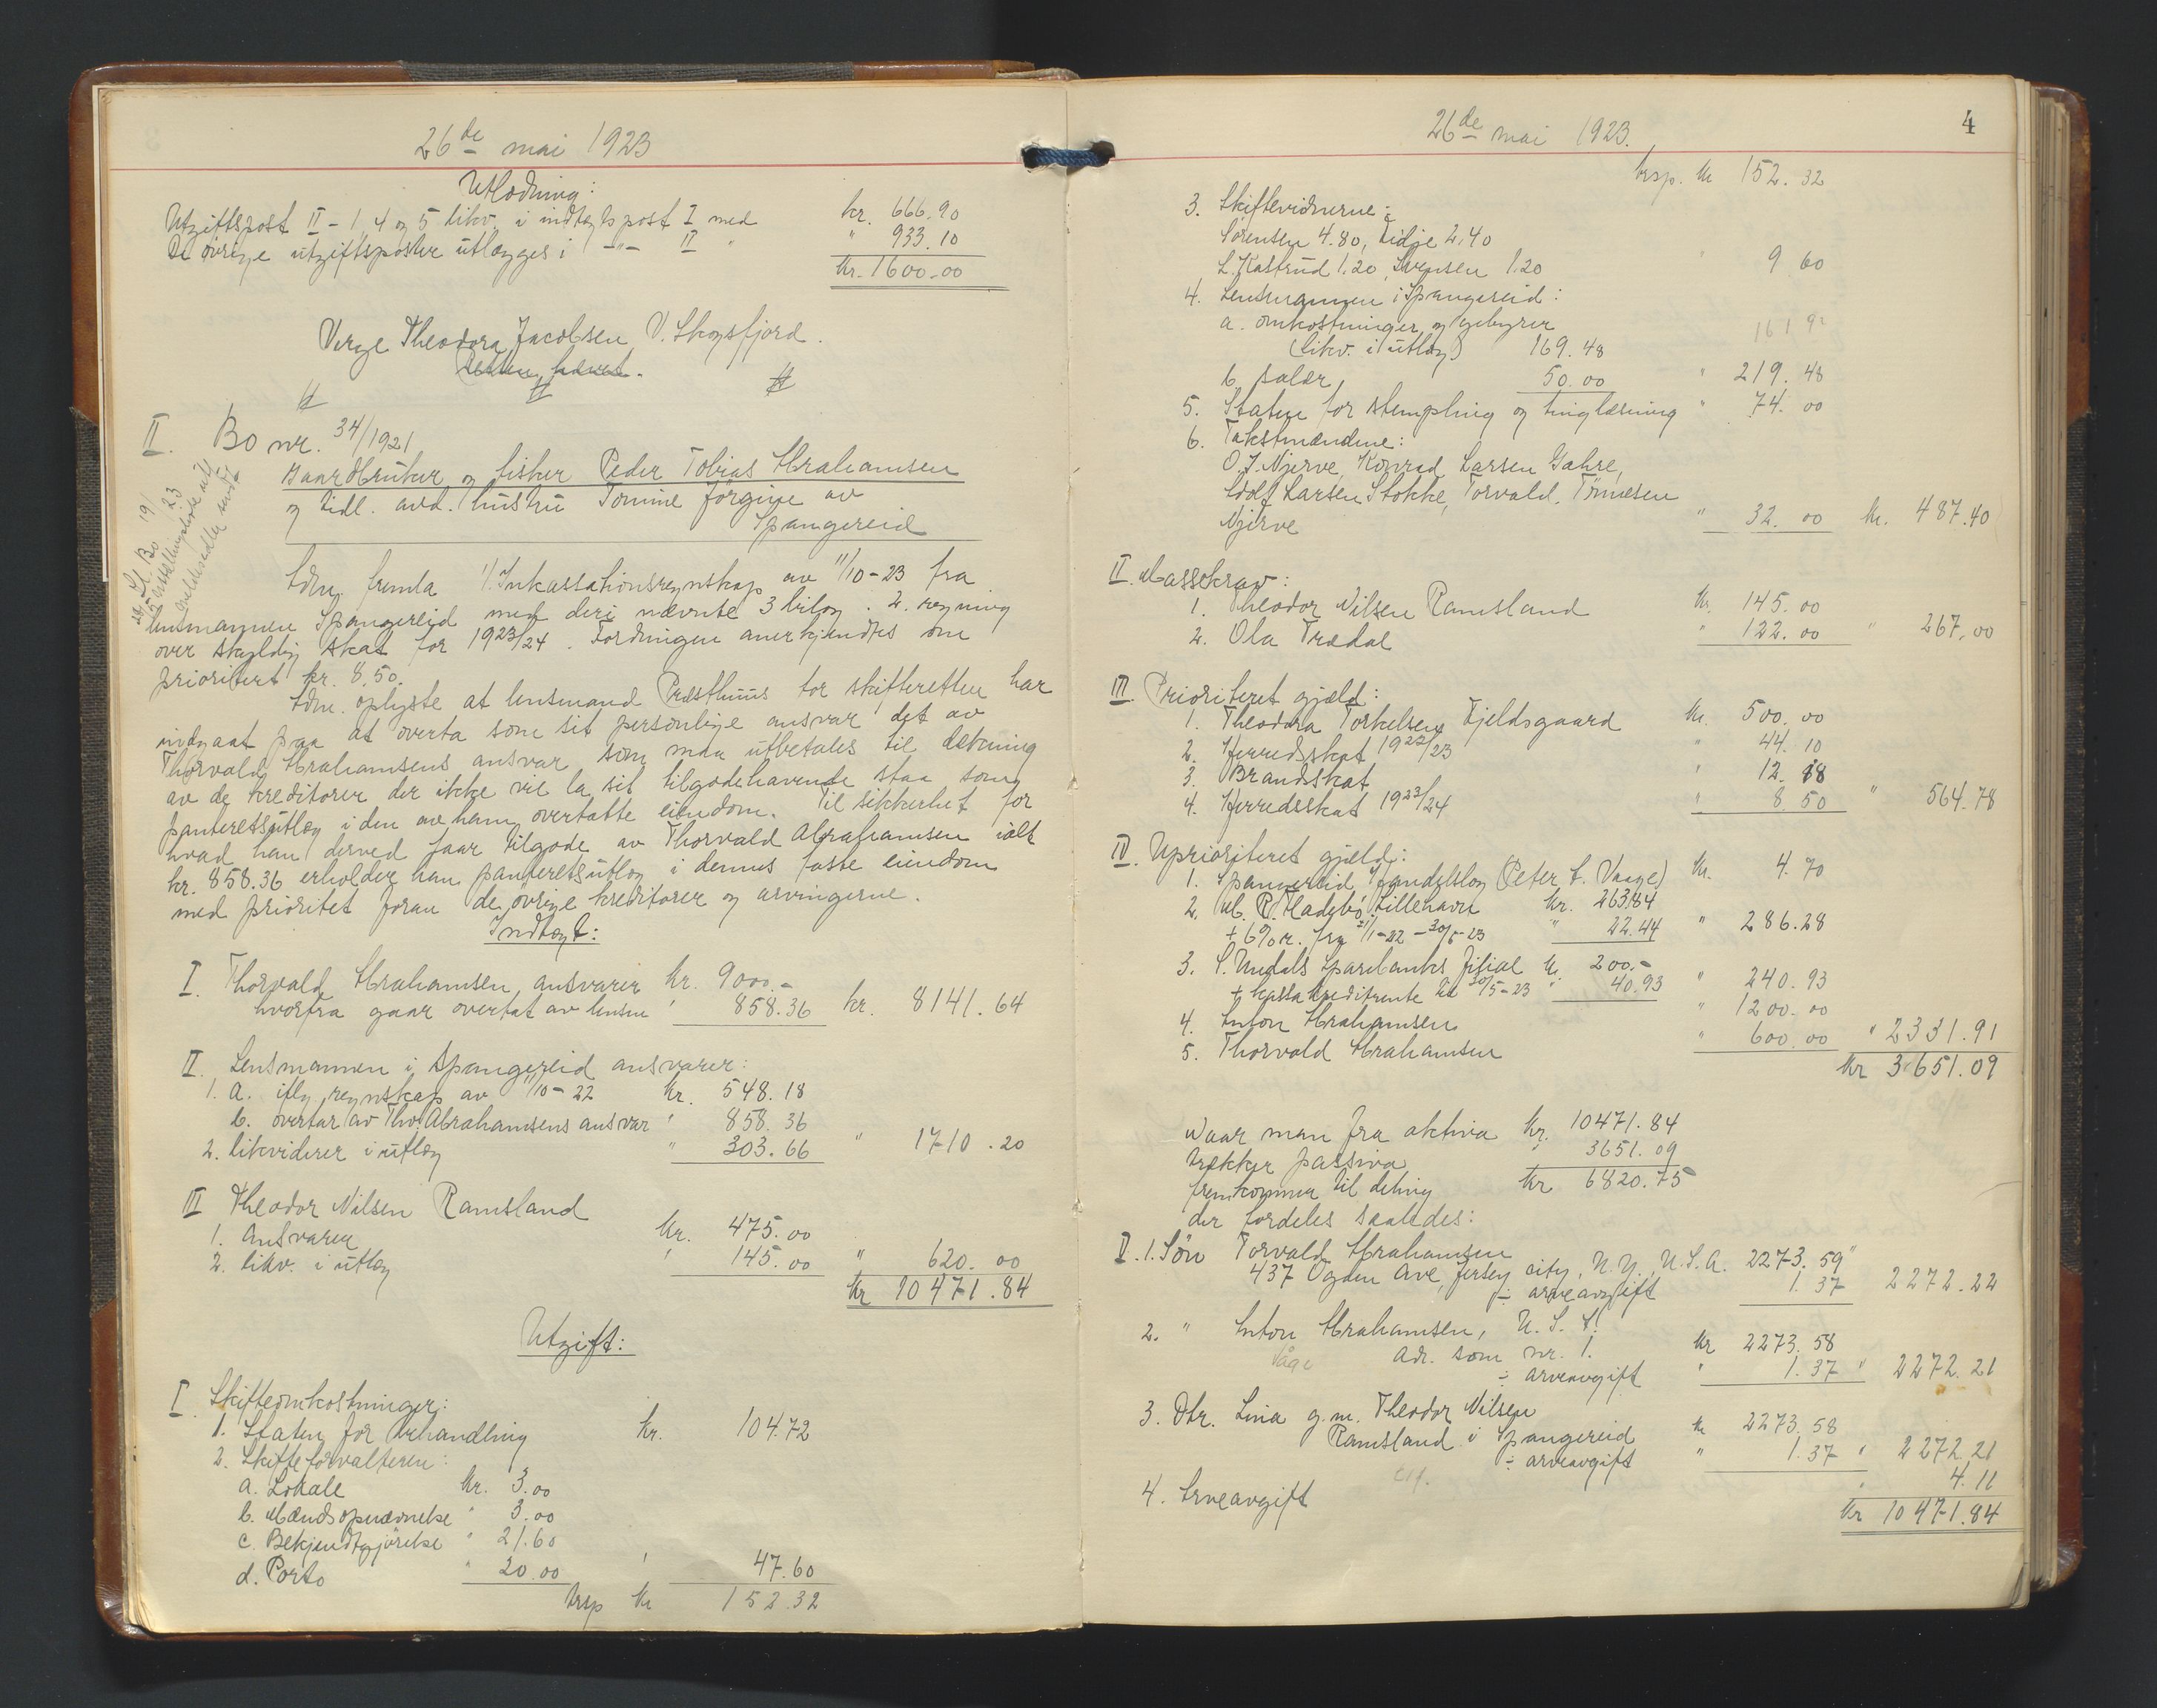 26de mai 1923
Utlodning:
Utgiftspost II - 1, 4 og 5 likv. i indtegtspost I med kr. 666.90
De øvrige utgiftsposter utlægges i -"- II " " 933.10
kr. 1600.00
Verge Theodora Jacobsen V. Skogsfjord.
Retten hævet.
II. Bo nr. 34/1921
Gaardbruker og fisker Peder Tobias Abrahamsen
og tidl. avd. hustru Tomine Jørgine av
Spangereid
Adm. fremla 1. Inkassationsregnskap av 11/10-23 fra
lensmannen Spangereid med deri nævnte 3 bilag. 2. regning
over skyldig skat for 1923/24. Fordringen anerkjendtes som
prioritert kr. 8.50.
Adm. oplyste at lensmand Præsthuus for skifteretten har
indgaat paa at overta som sit personlige ansvar det av
Thorvald Abrahamsens ansvar som maa utbetales til dekning
av de kreditorer der ikke vil la sit tilgodehavende staa som
panteretsutlæg i den av ham overtatte eiendom. Til sikkerhet for
hvad han derved faar tilgode av Thorvald Abrahamsen ialt
kr. 858.36 erholder han panteretsutlæg i dennes faste eiendom
med prioritet foran de øvrige kreditorer og arvingerne.
Indtægt:
I. Thorvald Abrahamsen ansvarer kr. 9000.-
hvorfra gaar overtat av lensm " 858.36 kr. 8141.64
II. Lensmannen i Spangereid ansvarer:
1. a. iflg. regnskap av 11/10-22 kr. 548.18
b. overtar av Thv. Abrahamsens ansvar " 858.36
2. likviderer i utlæg " 303.66 " 1710.20
III Theodor Nilsen Ramsland
1. Ansvarer kr. 475.00
2. likv. i utlæg " 145.00 " 620.00
kr 10471.84
Utgift:
I. Skifteomkostninger:
1. Staten for behandling kr. 104.72
2. Skifteforvalteren:
a. Lokale kr. 3.00
b. Mændsopnævnelse " 3.00
c. Bekjendtgjørelse " 21.60
d. Porto " 20.00 " 47.60
trsp kr 152.32
4
26de mai 1923.
trsp. kr 152.32
3. Skiftevidnerne:
Sørensen 4.80, Lidje 2.40
L. Kastrud 1.20, Svensen 1.20 " 9 60
4. Lensmannen i Spangereid:
a. omkostninger og gebyrer
(likv. i utlæg) 169.48
b. salær 50.00 " 219.48
5. Staten for stempling og tinglæsning " 74.00
6. Takstmændene:
O. J. Njerve, Konrad Larsen Gahre,
Adolf Larsen Stokke, Torvald Tønnesen
Njerve " 32.00 kr. 487.40
II. Massekrav:
1. Theodor Nilsen Ramsland kr. 145.00
2. Ola Trædal " 122.00 " 267.00
III Prioriteret gjæld:
1. Theodora Torkelsen Fjeldsgaard kr. 500.00
2. Herredsskat 1922/23 " 44.10
3. Brandskat " 12.18
4. Herredsskat 1923/24 " 8.50 " 564.78
IV. Uprioriteret gjæld:
1. Spangereid Handelslag (Peter A. Vaage) kr. 4.70
2. M. R. Fladebø Lillehavn kr. 263.84
+ 6% r. fra 1/1-22 - 30/5-23 " 22.44 " 286.28
3. S. Undals Sparebanks filial kr 200.-
+ kassakreditrente til 30/5-23 " 40.93 " 240.93
4. Anton Abrahamsen " 1200.00
5. Thorvald Abrahamsen " 600.00 " 2331.91
kr 3651.09
Naar man fra aktiva kr. 10471.84
trekker passiva " 3651.09
fremkommer til deling kr 6820.75
der fordeles saaledes:
V. 1. Søn Torvald Abrahamsen
437 Ogden Ave, Jersey city, N.Y., U.S.A. 2273.59"
÷ arveavgift 1.37 2272.22
2. " Anton Abrahamsen, U.S.A.
Våge adr. som nr. 1. kr 2273.58
÷ arveavgift " 1.37 " 2272.21
3. Dtr. Lina g.m. Theodor Nilsen
Ramsland i Spangereid kr 2273.58
÷ arveavgift " 1.37 " 2272.21
4. Arveavgift " 4.11
kr 10471.84